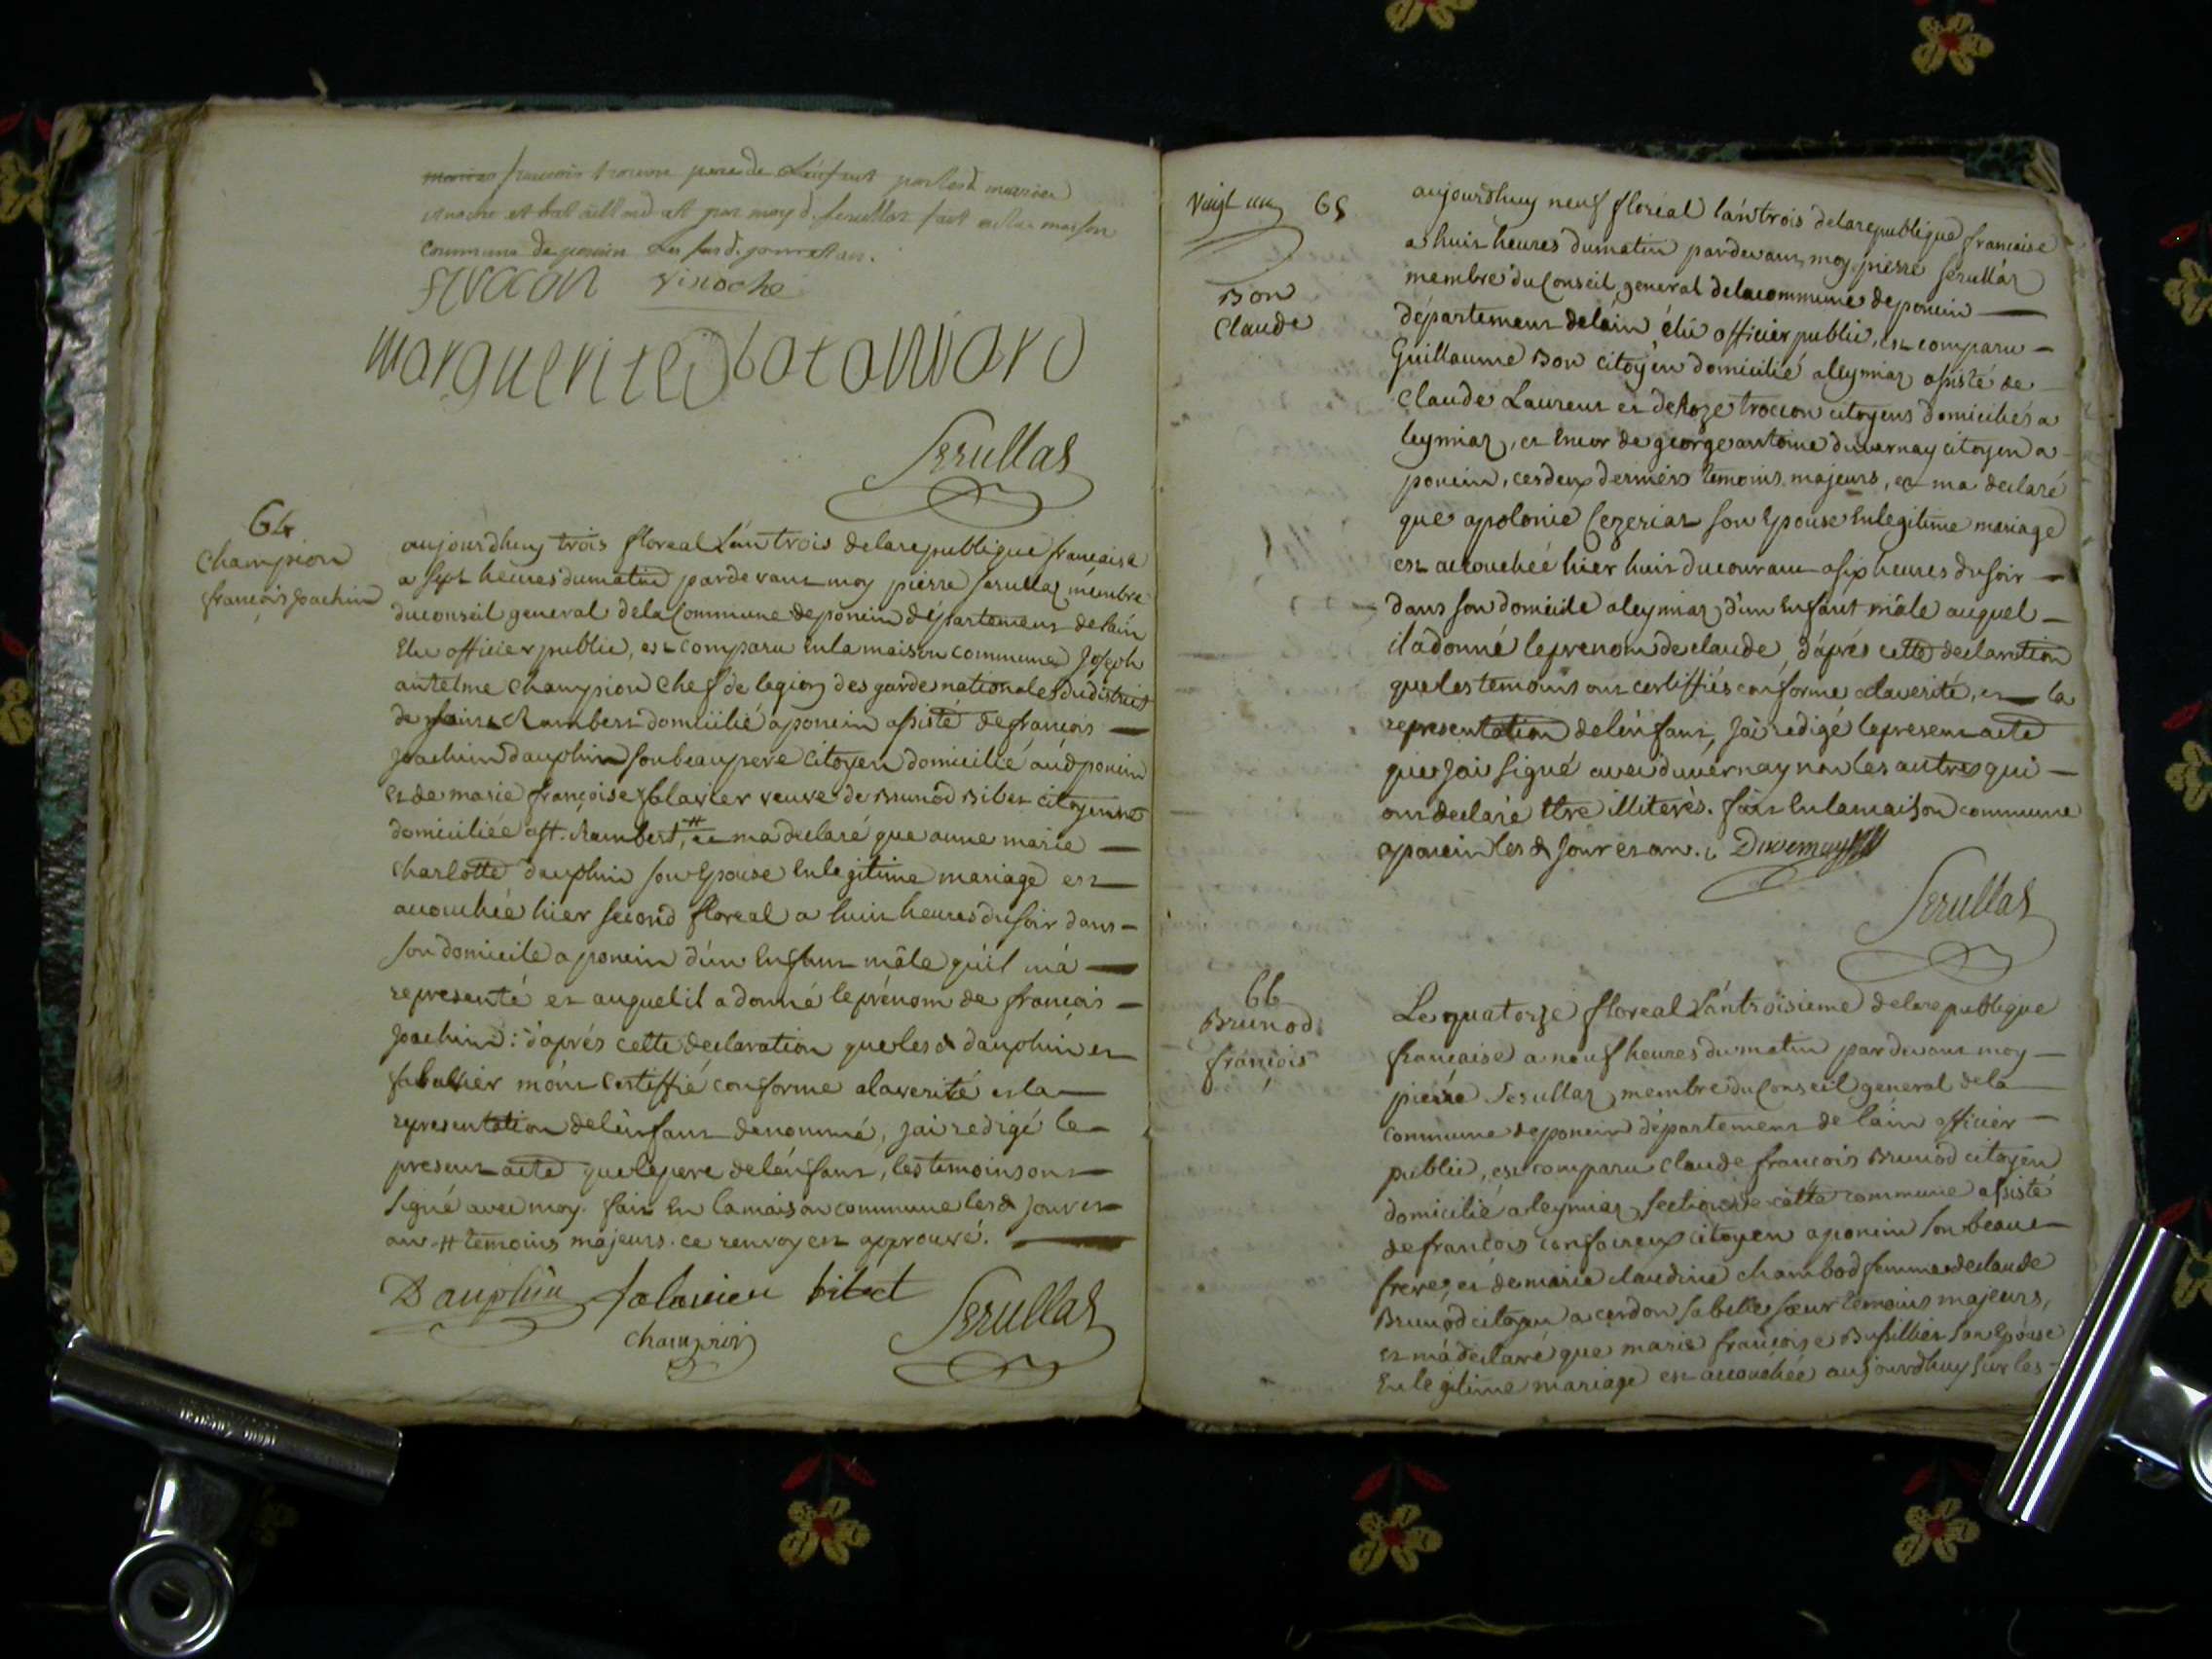 françois trocon pere de L'enfant par lesd. marie
vinoche et bataillard et par moy d. serullaz fait en la maison
commune de poncin Les susd. jour et an.
trocon vinoche
marguerite bataillard
Serullaz
64
Champion
françois Joachim
aujourdhuy trois floreal L'an trois de la republique française
a sept heures du matin pardevant moy pierre serullaz membre
du conseil general de la Commune de poncin département de l'ain
Elu officier public, est comparu en la maison commune Joseph
antelme Champion Chef de legion des gardes nationales du district
de saint Rambert domicilié a poncin assisté de françois
Joachim dauphin son beaupere Citoyen domicilié aud poncin
et de marie françoise falavier veuve de Brunod Bibet citoyenne
domiciliée a st. Rambert, # et ma declaré que anne marie
Charlotte dauphin son Epouse en legitime mariage est
accouchée hier second floreal a huit heures du soir dans
son domicile a poncin d'un Enfant mâle qu'il m'a
representé et auquel il a donné le prénom de françois
Joachim : d'aprés cette declaration que les d dauphin et
falavier m'ont Certiffié conforme a la verité et la
representation de l'enfant denommé, j'ai redigé le
present acte que le pere de l'enfant, les temoins ont
signé avec moy. fait En la maison commune les d jour et
an # temoins majeurs. ce renvoy est approuvé.
Dauphin falavier bibet
Champion
Serullaz
Vingt un 65
Bon
Claude
aujourdhuy neuf floréal l'an trois de la republique française
a huit heures du matin pardevant moy pierre serullaz
membre du Conseil general de la commune de poncin
département de l'ain élu officier public, est comparu
Guillaume Bon citoyen domicilié a leymiaz assisté de
Claude Laurent et de Roze trocon citoyens domiciliés a
leymiaz, et Encor de george antoine duvernay citoyen a
poncin, ces deux derniers temoins majeurs, et ma declaré
que apolonie Cezeriat son Epouse En legitime mariage
est accouchée hier huit du courant a six heures du soir
dans son domicile a leymiaz d'un Enfant mâle auquel
il a donné le prenom de claude, d'aprés cette declaration
que les temoins ont certiffiés conforme a la verité, et la
representation de l'enfant, j'ai redigé le present acte
que j'ai signé avec duvernay non les autres qui
ont declaré Etre illiterés. fait En la maison commune
a poncin les d jour et an. Duvernay
Serullaz
66
Brunod
françois
Le quatorze floreal L'an troisieme de la republique
française a neuf heures du matin pardevant moy
pierre Serullaz membre du Conseil general de la
commune de poncin département de l'ain officier
public, est comparu Claude françois Brunod citoyen
domicilié a leymiaz section de cette commune assisté
de françois confavreux citoyen a poncin son beau
frere, et de marie claudine chambod femme de claude
Brunod citoyen a cerdon sa belle sœur temoins majeurs,
et m'a declaré que marie françoise Bussillier son Epouse
En legitime mariage est accouchée aujourdhuy sur les